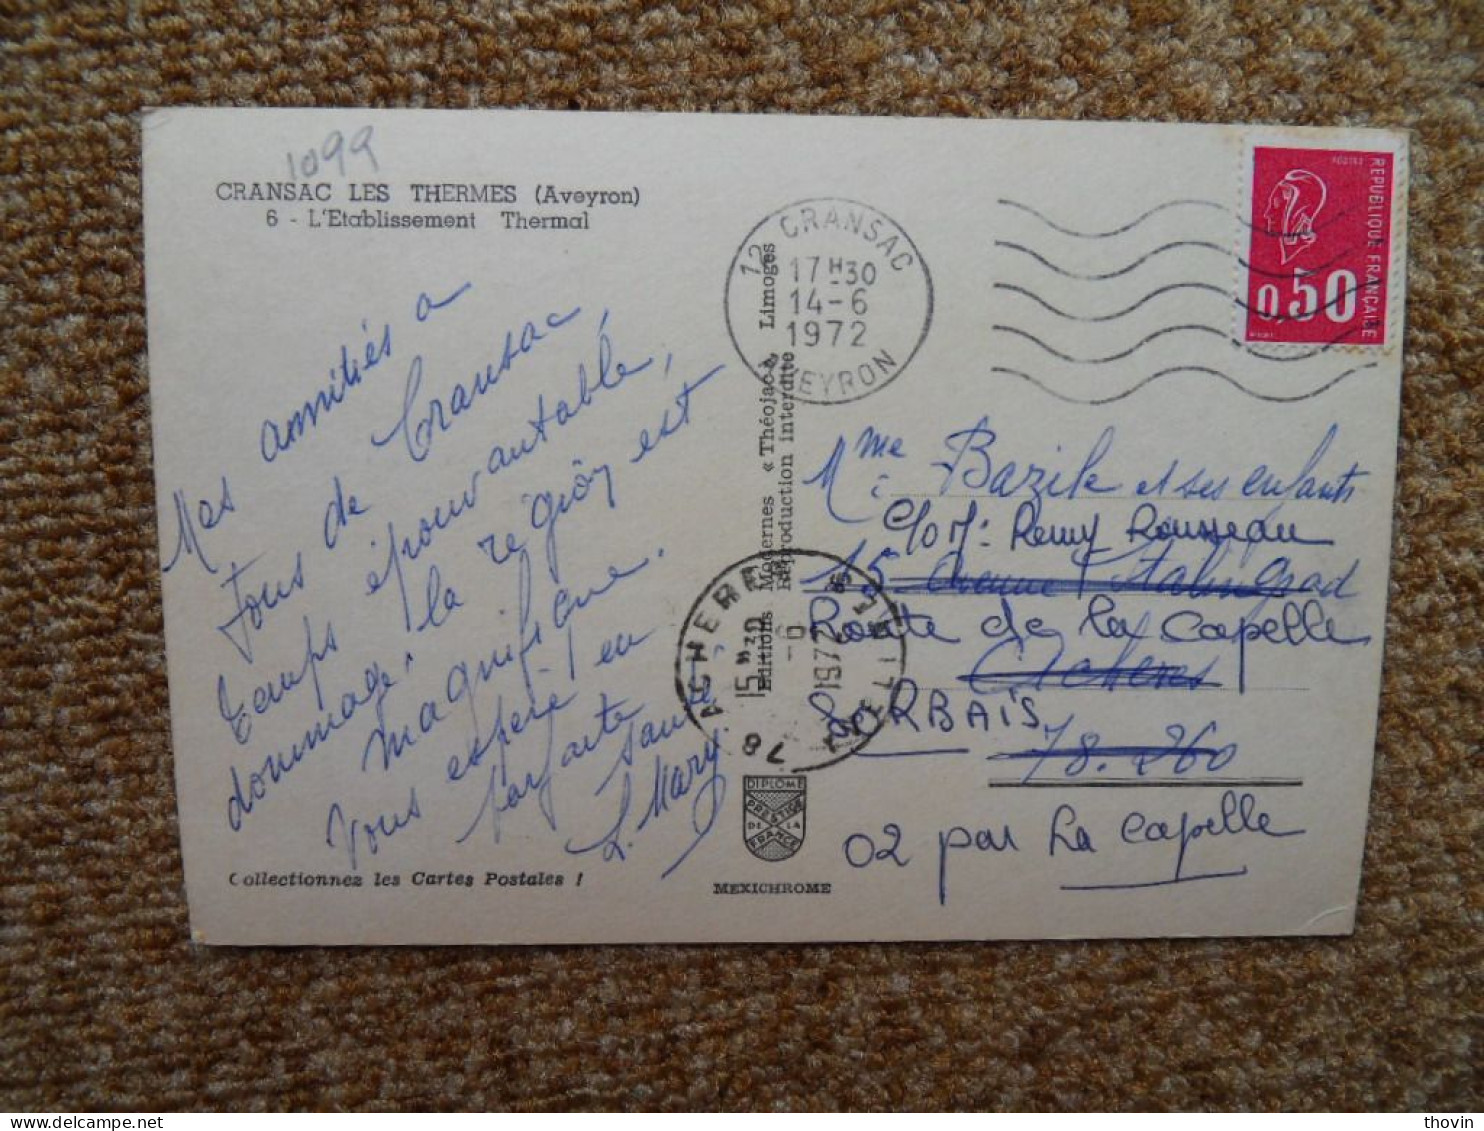 1099
CRANSAC LES THERMES (Aveyron)
6 - L'Etablissement Thermal
Mes amitiés a
tous de Cransac,
temps épouvantable,
dommage, la région est
magnifique.
Vous espère en
parfaite santé
L. Mary
Collectionnez les Cartes Postales !
Editions Modernes « Théojac », Limoges
Reproduction interdite
12 CRANSAC
17H30
14-6
1972
AVEYRON
78 ACHERES
15H30
-6
1972
DIPLOME
PRESTIGE
DE LA
FRANCE
MEXICHROME
POSTES
REPUBLIQUE FRANÇAISE
0,50
Mme Bazile et ses enfants
c/o M: Remy Rousseau
15 avenue Stalingrad
Route de la Capelle
Acheres
SORBAIS
78.260
02 par La Capelle
thovin